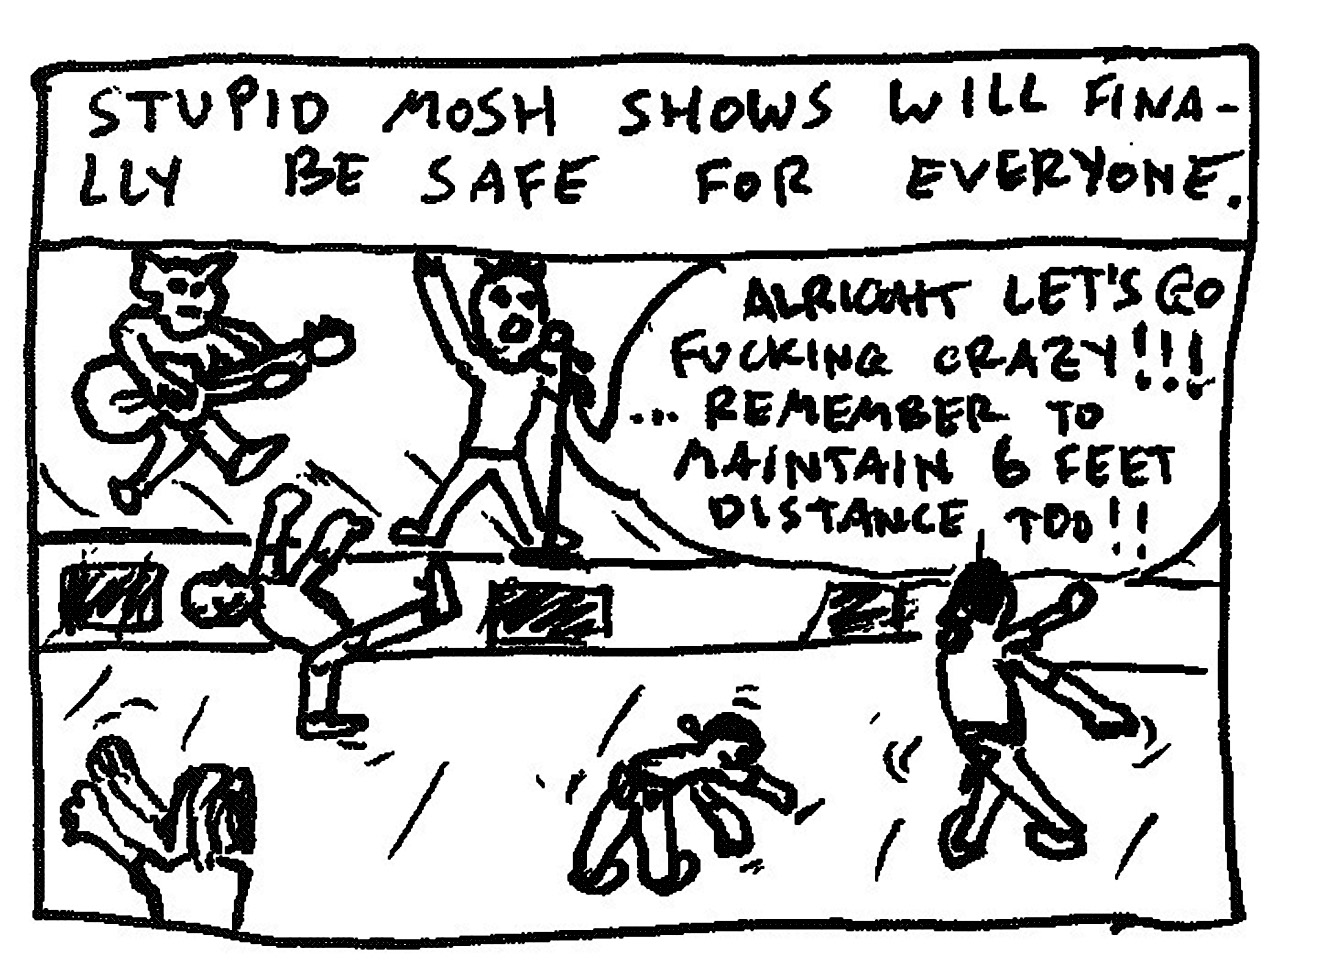 STUPID MOSH SHOWS WILL FINA-
LLY BE SAFE FOR EVERYONE.
ALRIGHT LET'S GO
FUCKING CRAZY!!!
... REMEMBER TO
MAINTAIN 6 FEET
DISTANCE TOO!!